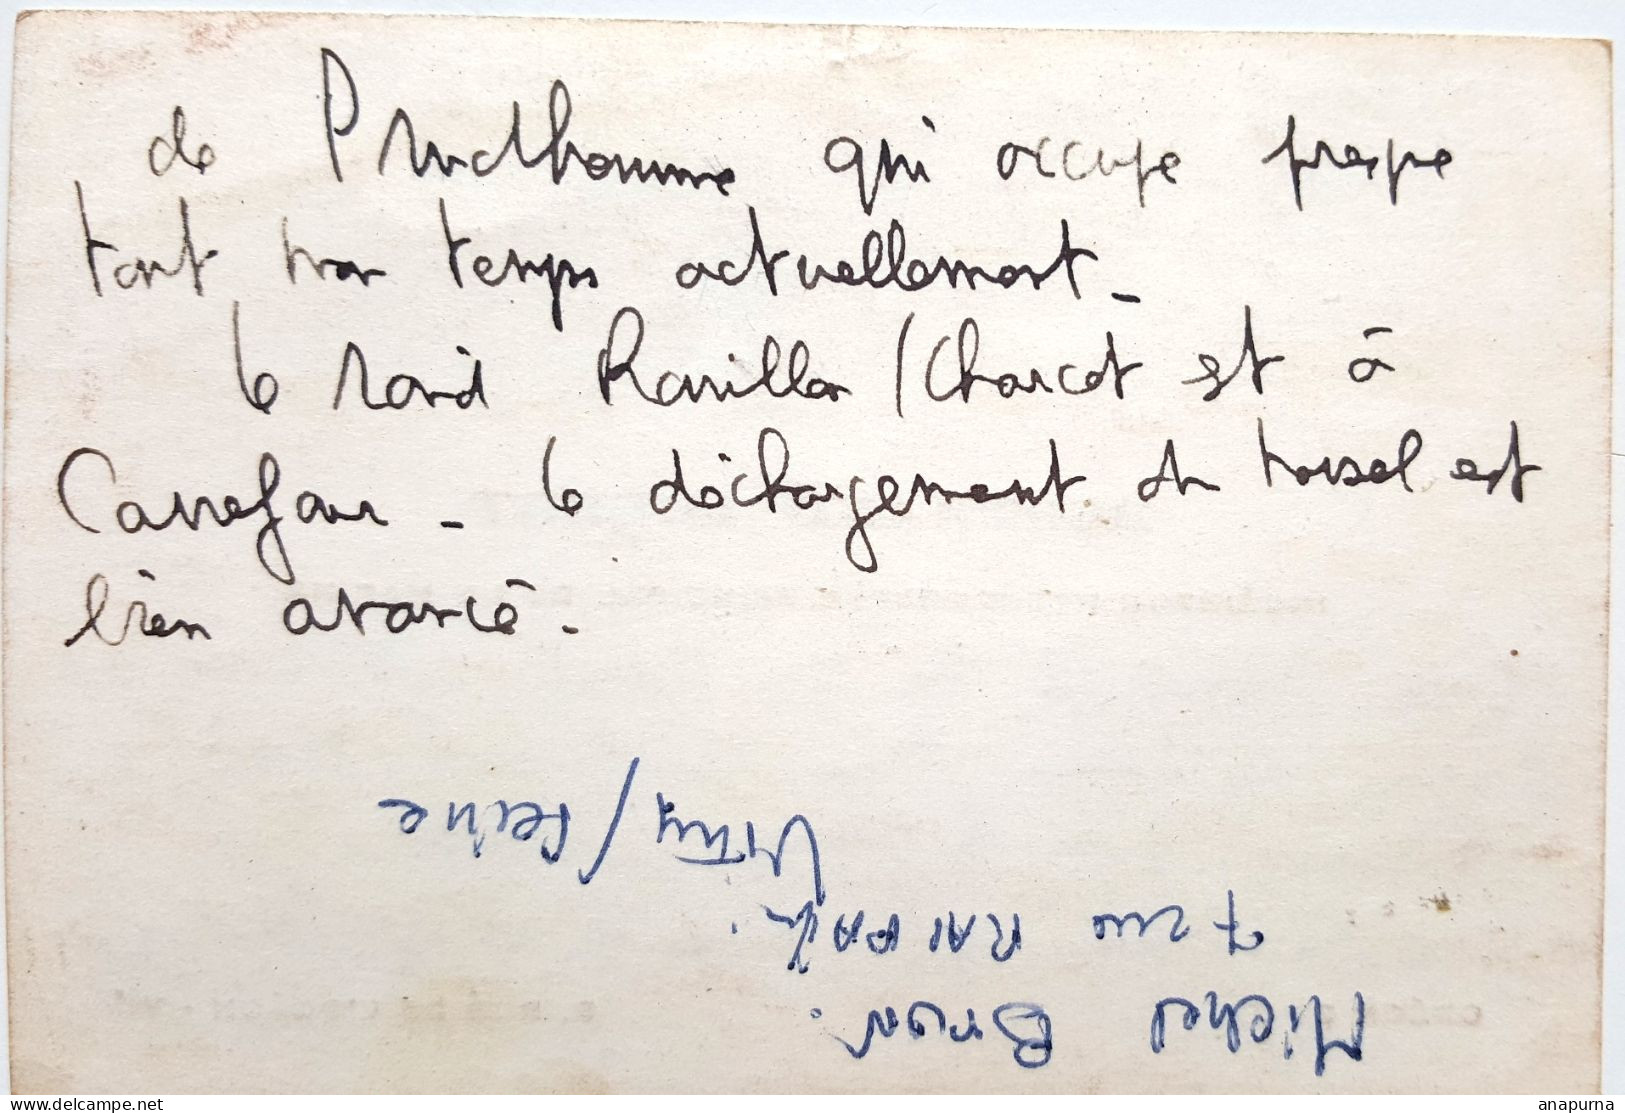 de Prudhomme qui occupe presque
tout mon temps actuellement -
le raid Ravilla / Charcot est à
Carrefour - le déchargement du vaissel est
bien avancé.
Michel Brun.
7 rue
Vitry / Seine
www.delcampe.net
anapurna